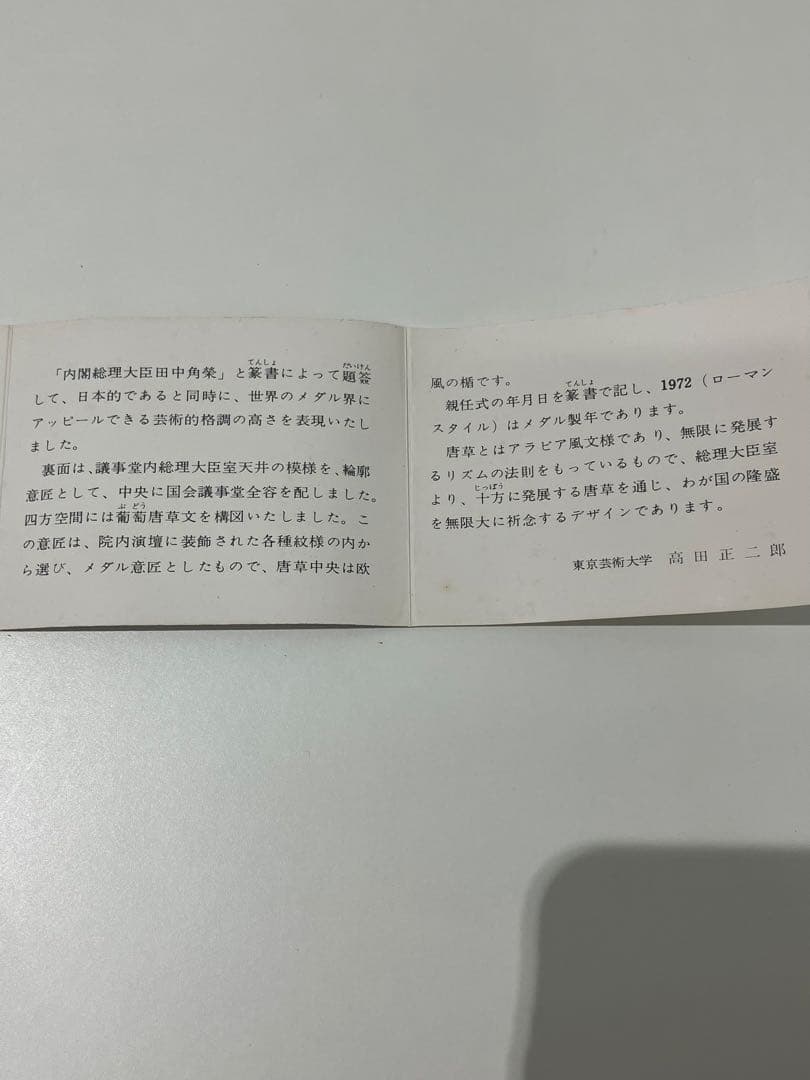 「内閣総理大臣田中角榮」と篆書によって題簽
して、日本的であると同時に、世界のメダル界に
アッピールできる芸術的格調の高さを表現いたし
ました。
裏面は、議事堂内総理大臣室天井の模様を、輪廓
意匠として、中央に国会議事堂全容を配しました。
四方空間には葡萄唐草文を構図いたしました。こ
の意匠は、院内演壇に装飾された各種紋様の内か
ら選び、メダル意匠としたもので、唐草中央は欧
風の楯です。
親任式の年月日を篆書で記し、1972（ローマン
スタイル）はメダル製年であります。
唐草とはアラビア風文様であり、無限に発展す
るリズムの法則をもっているもので、総理大臣室
より、十方に発展する唐草を通じ、わが国の隆盛
を無限大に祈念するデザインであります。
東京芸術大学 高田正二郎